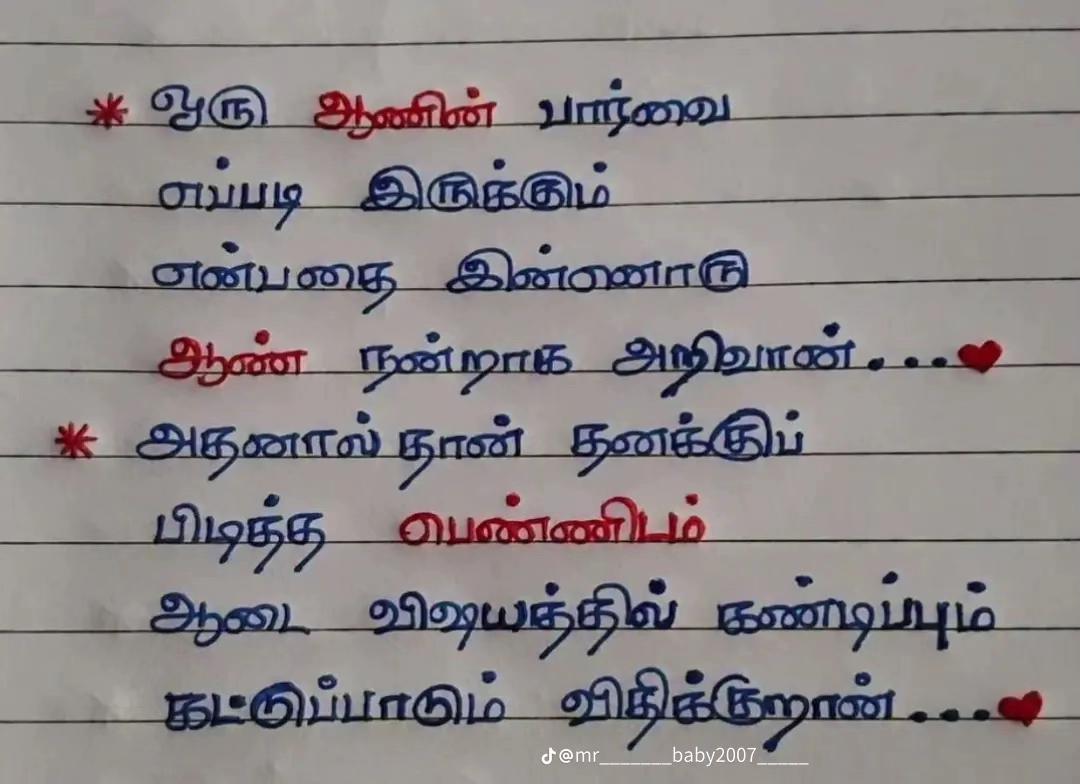 * ஒரு ஆணின் பார்வை
எப்படி இருக்கும்
என்பதை இன்னொரு
ஆண் நன்றாக அறிவான்...❤
* அதனால் தான் தனக்குப்
பிடித்த பெண்ணிடம்
ஆடை விஷயத்தில் கண்டிப்பும்
கட்டுப்பாடும் விதிக்குறான்...❤
@mr_______baby2007_____